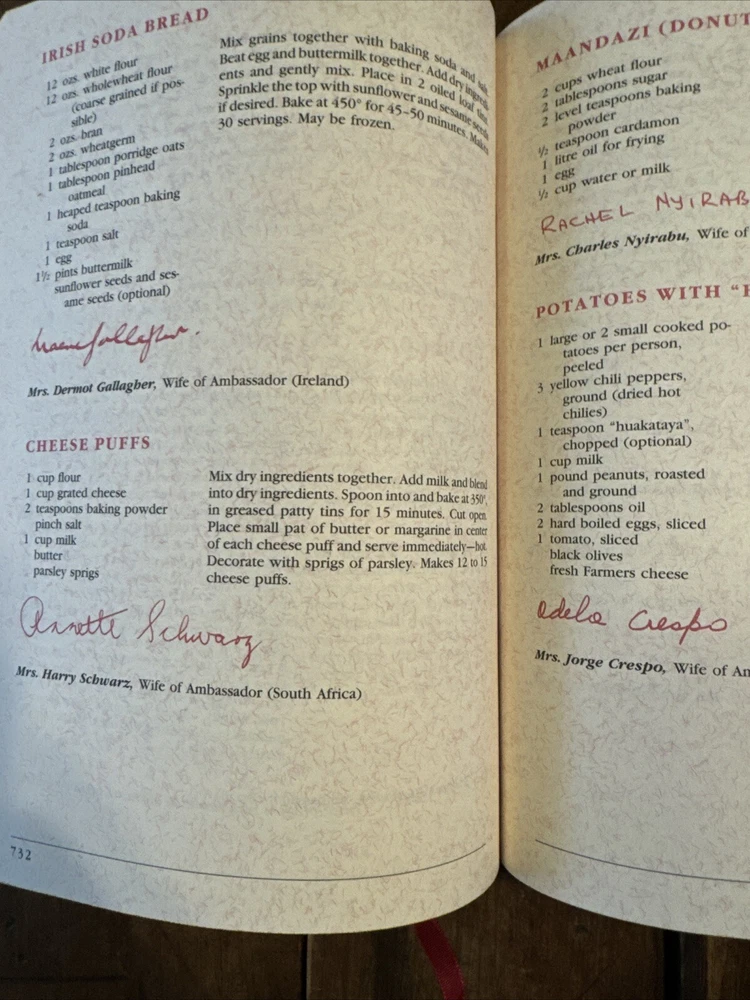 IRISH SODA BREAD
12 ozs. white flour
12 ozs. wholewheat flour
(coarse grained if pos-
sible)
2 ozs. bran
2 ozs. wheatgerm
1 tablespoon porridge oats
1 tablespoon pinhead
oatmeal
1 heaped teaspoon baking
soda
1 teaspoon salt
1 egg
1½ pints buttermilk
sunflower seeds and ses-
ame seeds (optional)
Mix grains together with baking soda and salt.
Beat egg and buttermilk together. Add dry ingredi-
ents and gently mix. Place in 2 oiled loaf tins.
Sprinkle the top with sunflower and sesame seeds
if desired. Bake at 450° for 45–50 minutes. Makes
30 servings. May be frozen.
Mrs. Dermot Gallagher, Wife of Ambassador (Ireland)
CHEESE PUFFS
1 cup flour
1 cup grated cheese
2 teaspoons baking powder
pinch salt
1 cup milk
butter
parsley sprigs
Mix dry ingredients together. Add milk and blend
into dry ingredients. Spoon into and bake at 350°,
in greased patty tins for 15 minutes. Cut open.
Place small pat of butter or margarine in center
of each cheese puff and serve immediately—hot.
Decorate with sprigs of parsley. Makes 12 to 15
cheese puffs.
Annette Schwarz
Mrs. Harry Schwarz, Wife of Ambassador (South Africa)
732
MAANDAZI (DONUT
2 cups wheat flour
2 tablespoons sugar
2 level teaspoons baking
powder
½ teaspoon cardamon
1 litre oil for frying
1 egg
½ cup water or milk
RACHEL NYIRAB
Mrs. Charles Nyirabu, Wife of
POTATOES WITH "H
1 large or 2 small cooked po-
tatoes per person,
peeled
3 yellow chili peppers,
ground (dried hot
chilies)
1 teaspoon "huakataya",
chopped (optional)
1 cup milk
1 pound peanuts, roasted
and ground
2 tablespoons oil
2 hard boiled eggs, sliced
1 tomato, sliced
black olives
fresh Farmers cheese
Adela Crespo
Mrs. Jorge Crespo, Wife of Am